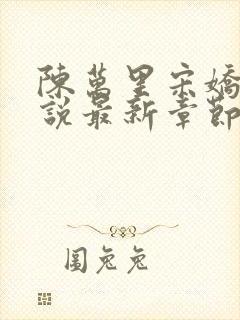 陳萬里宋嬌
說最新章節
圖兔兔